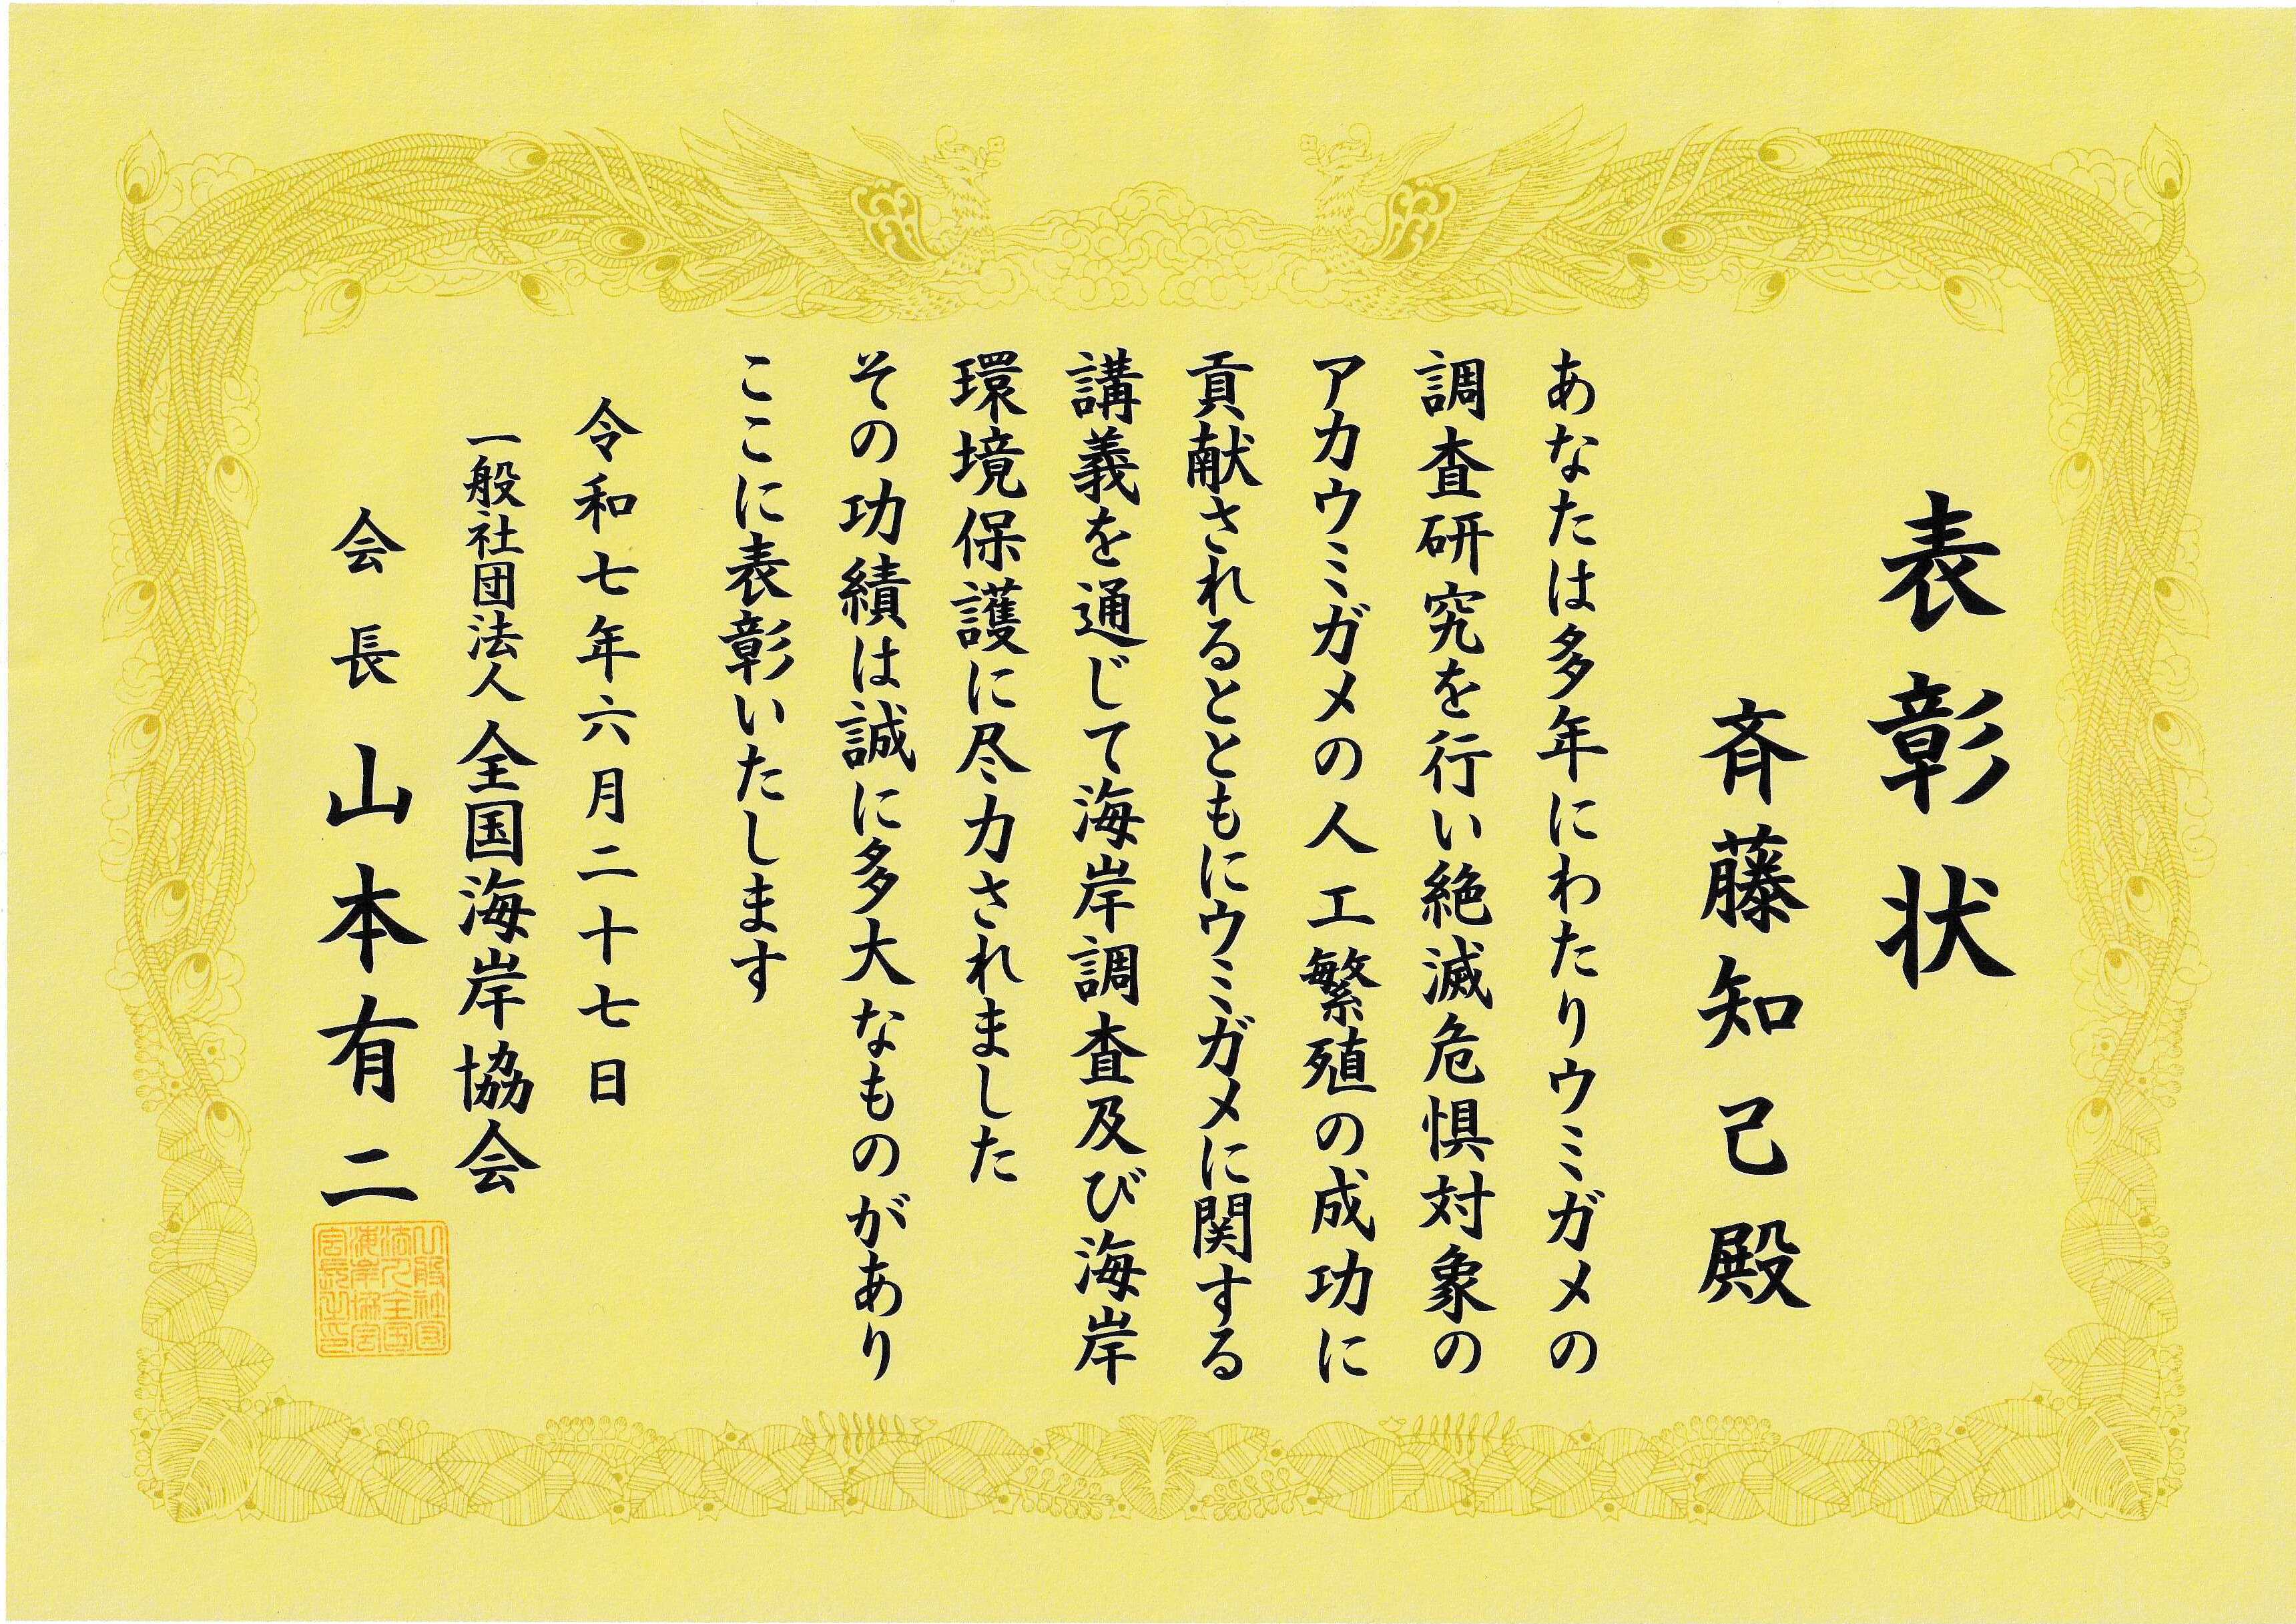 表彰状
斉藤知己殿
あなたは多年にわたりウミガメの
調査研究を行い絶滅危惧対象の
アカウミガメの人工繁殖の成功に
貢献されるとともにウミガメに関する
講義を通じて海岸調査及び海岸
環境保護に尽力されました
その功績は誠に多大なものがあり
ここに表彰いたします
令和七年六月二十七日
一般社団法人全国海岸協会
会長山本有二
一般社団
法人全国
海岸協会
会長之印